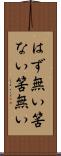 はず無い筈
ない筈無い